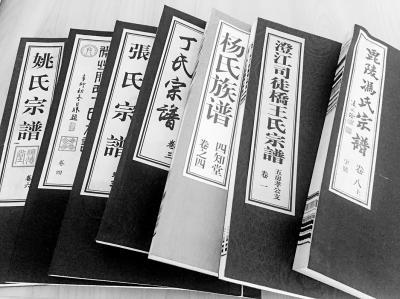 姚氏宗譜
卷六
卷四
張氏宗譜
丁氏宗譜
卷三
杨氏族谱
四知堂
卷之四
澄江司徒橋王氏宗譜
卷一
毘陵馮氏宗譜
卷八上